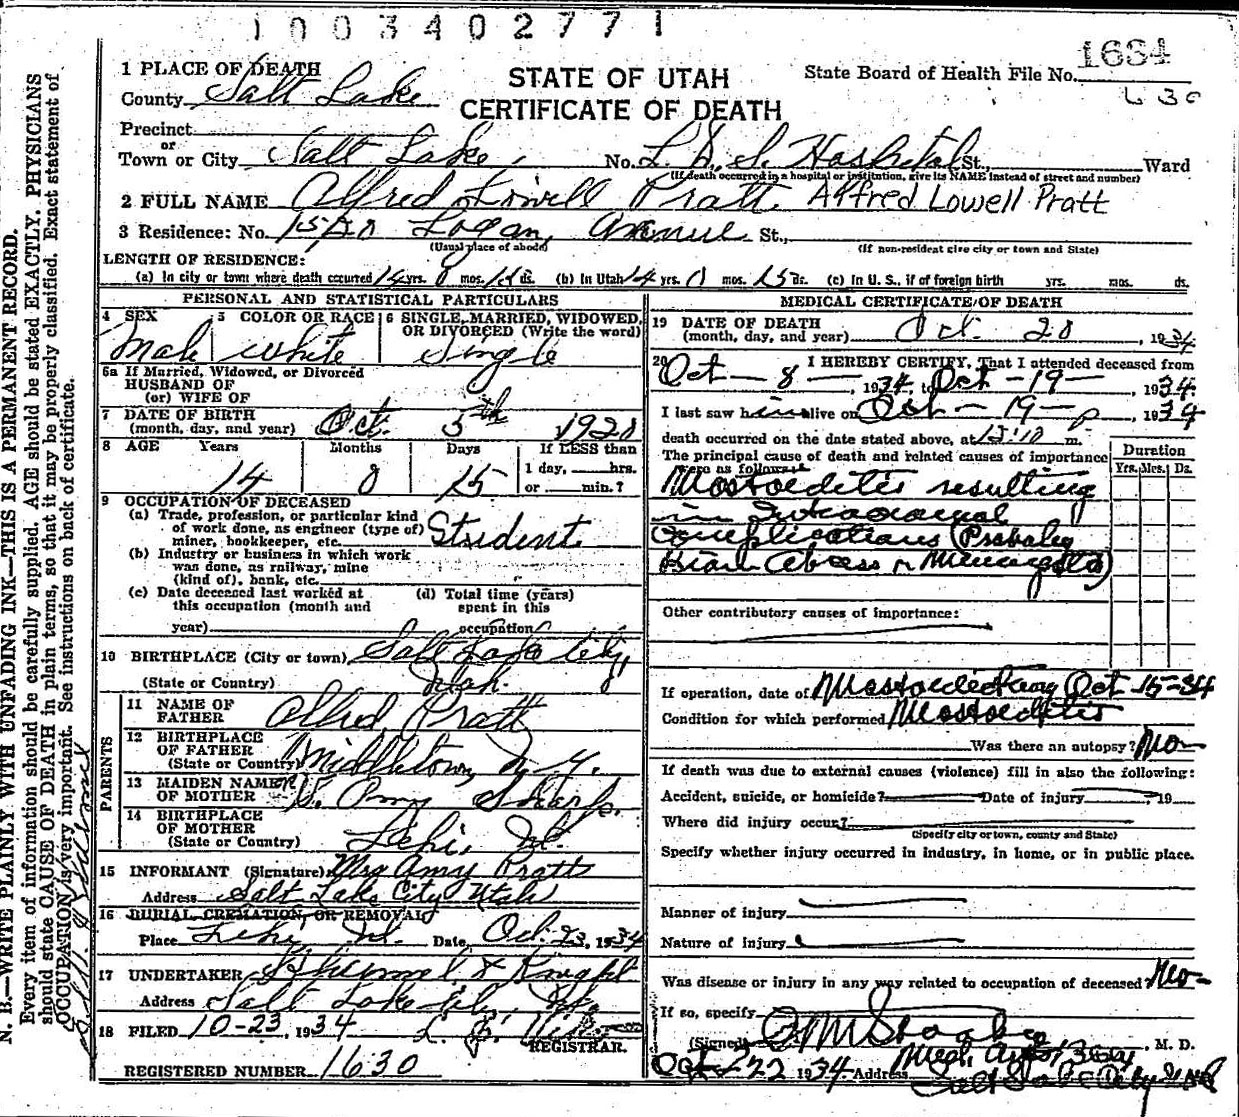 1003402771
1684
630
STATE OF UTAH
CERTIFICATE OF DEATH
State Board of Health File No.
1 PLACE OF DEATH
County Salt Lake
Precinct
or
Town or City Salt Lake, No. L. D. S. Hospital St., Ward
(If death occurred in a hospital or institution, give its NAME instead of street and number)
2 FULL NAME Alfred Lowell Pratt Alfred Lowell Pratt
3 Residence: No. Logan Avenue St.,
(Usual place of abode) (If non-resident give city or town and State)
LENGTH OF RESIDENCE:
(a) In city or town where death occurred 14 yrs. 0 mos. 15 ds. (b) In Utah 14 yrs. 0 mos. 15 ds. (c) In U. S., if of foreign birth yrs. mos. ds.
PERSONAL AND STATISTICAL PARTICULARS
4 SEX 5 COLOR OR RACE 6 SINGLE, MARRIED, WIDOWED, OR DIVORCED (Write the word)
Male white Single
6a If Married, Widowed, or Divorced
HUSBAND OF
(or) WIFE OF
7 DATE OF BIRTH
(month, day, and year) Oct. 5th 1920
8 AGE Years Months Days If LESS than
14 0 15 1 day, hrs.
or min.?
9 OCCUPATION OF DECEASED
(a) Trade, profession, or particular kind
of work done, as engineer (type of)
miner, bookkeeper, etc. Student
(b) Industry or business in which work
was done, as railway, mine
(kind of), bank, etc.
(c) Date deceased last worked at (d) Total time (years)
this occupation (month and spent in this
year) occupation
10 BIRTHPLACE (City or town) Salt Lake City,
(State or Country) Utah.
PARENTS
11 NAME OF
FATHER Alfred Pratt
12 BIRTHPLACE
OF FATHER
(State or Country) Middletown, N. Y.
13 MAIDEN NAME
OF MOTHER Amy Sharp.
14 BIRTHPLACE
OF MOTHER
(State or Country) Lehi, Ut.
15 INFORMANT (Signature) Mrs Amy Pratt
Address Salt Lake City Utah
16 BURIAL, CREMATION, OR REMOVAL
Place Lehi, Ut. Date Oct. 23, 1934
17 UNDERTAKER & Knight
Address Salt Lake City, Utah
18 FILED 10-23, 1934
REGISTRAR.
REGISTERED NUMBER 1630
MEDICAL CERTIFICATE OF DEATH
19 DATE OF DEATH
(month, day, and year) Oct. 20, 1934
20 I HEREBY CERTIFY, That I attended deceased from
Oct - 8 -, 1934, to Oct - 19 -, 1934.
I last saw him alive on Oct - 19 - p, 1934
death occurred on the date stated above, at 12:10 m.
The principal cause of death and related causes of importance
were as follows: Duration
Yrs. Mos. Ds.
Mastoiditis resulting
in Intracranial
Complications (Probably
Brain Abcess or Meningitis)
Other contributory causes of importance:
If operation, date of Mastoidectomy Oct 15-34
Condition for which performed Mastoiditis
Was there an autopsy? No-
If death was due to external causes (violence) fill in also the following:
Accident, suicide, or homicide? Date of injury , 19
Where did injury occur?
(Specify city or town, county and State)
Specify whether injury occurred in industry, in home, or in public place.
Manner of injury
Nature of injury
Was disease or injury in any way related to occupation of deceased? No-
If so, specify
(Signed) , M. D.
Oct 22 1934. Address Med. Arts Bldg
Salt Lake City Utah
N. B.—WRITE PLAINLY WITH UNFADING INK—THIS IS A PERMANENT RECORD.
Every item of information should be carefully supplied. AGE should be stated EXACTLY. PHYSICIANS
should state CAUSE OF DEATH in plain terms, so that it may be properly classified. Exact statement of
OCCUPATION is very important. See instructions on back of certificate.